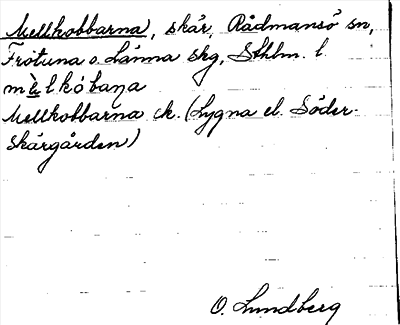 Mellkobbarna, skär, Rådmansö sn,
Frötuna o. Länna skg, Sthlm. l
mèlkóbaṇa
Mellkobbarna ek. (Lygna el. Söder-
skärgården)
O. Lundberg